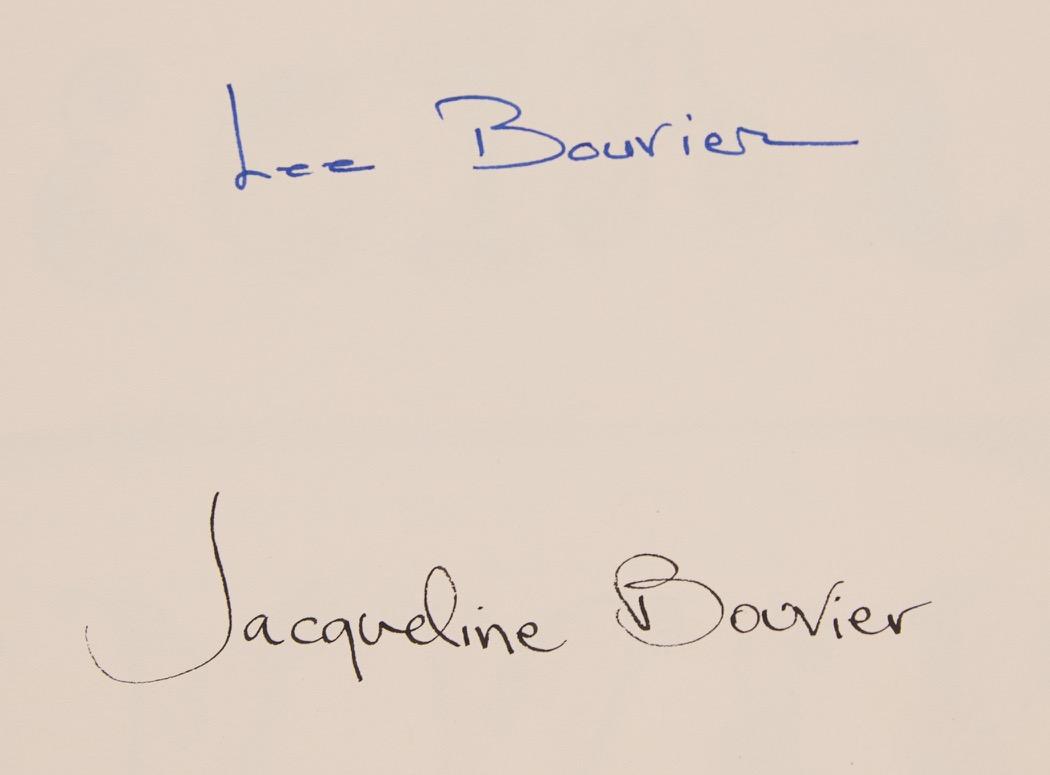 Lee Bouvier
Jacqueline Bouvier